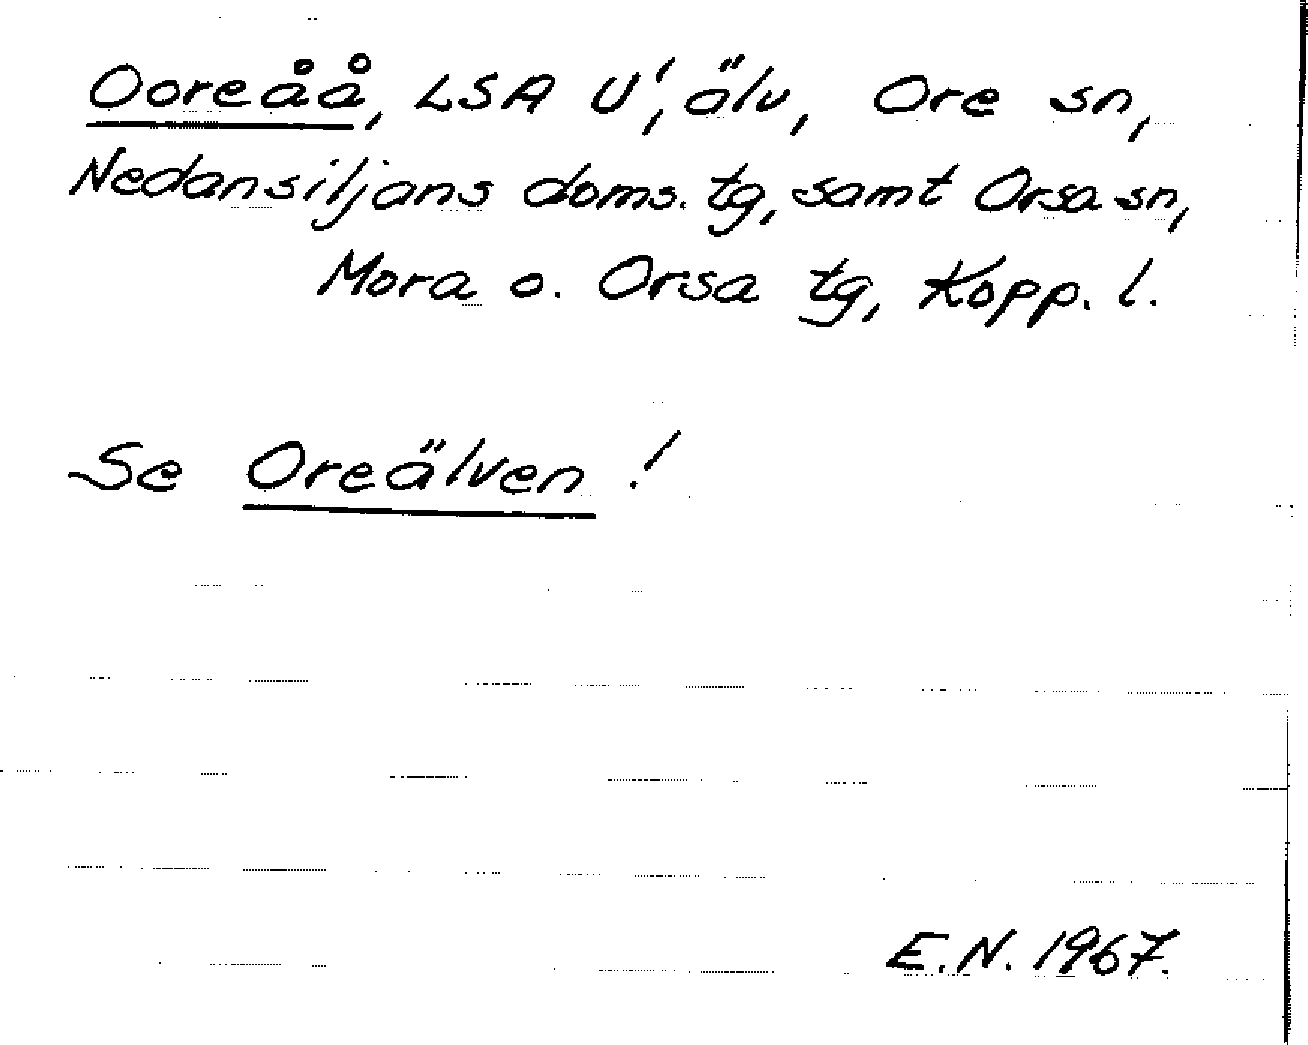 Ooreåå, LSA U', älv, Ore sn,
Nedansiljans doms. tg, samt Orsa sn,
Mora o. Orsa tg, Kopp. l.
Se Oreälven!
E.N. 1967.